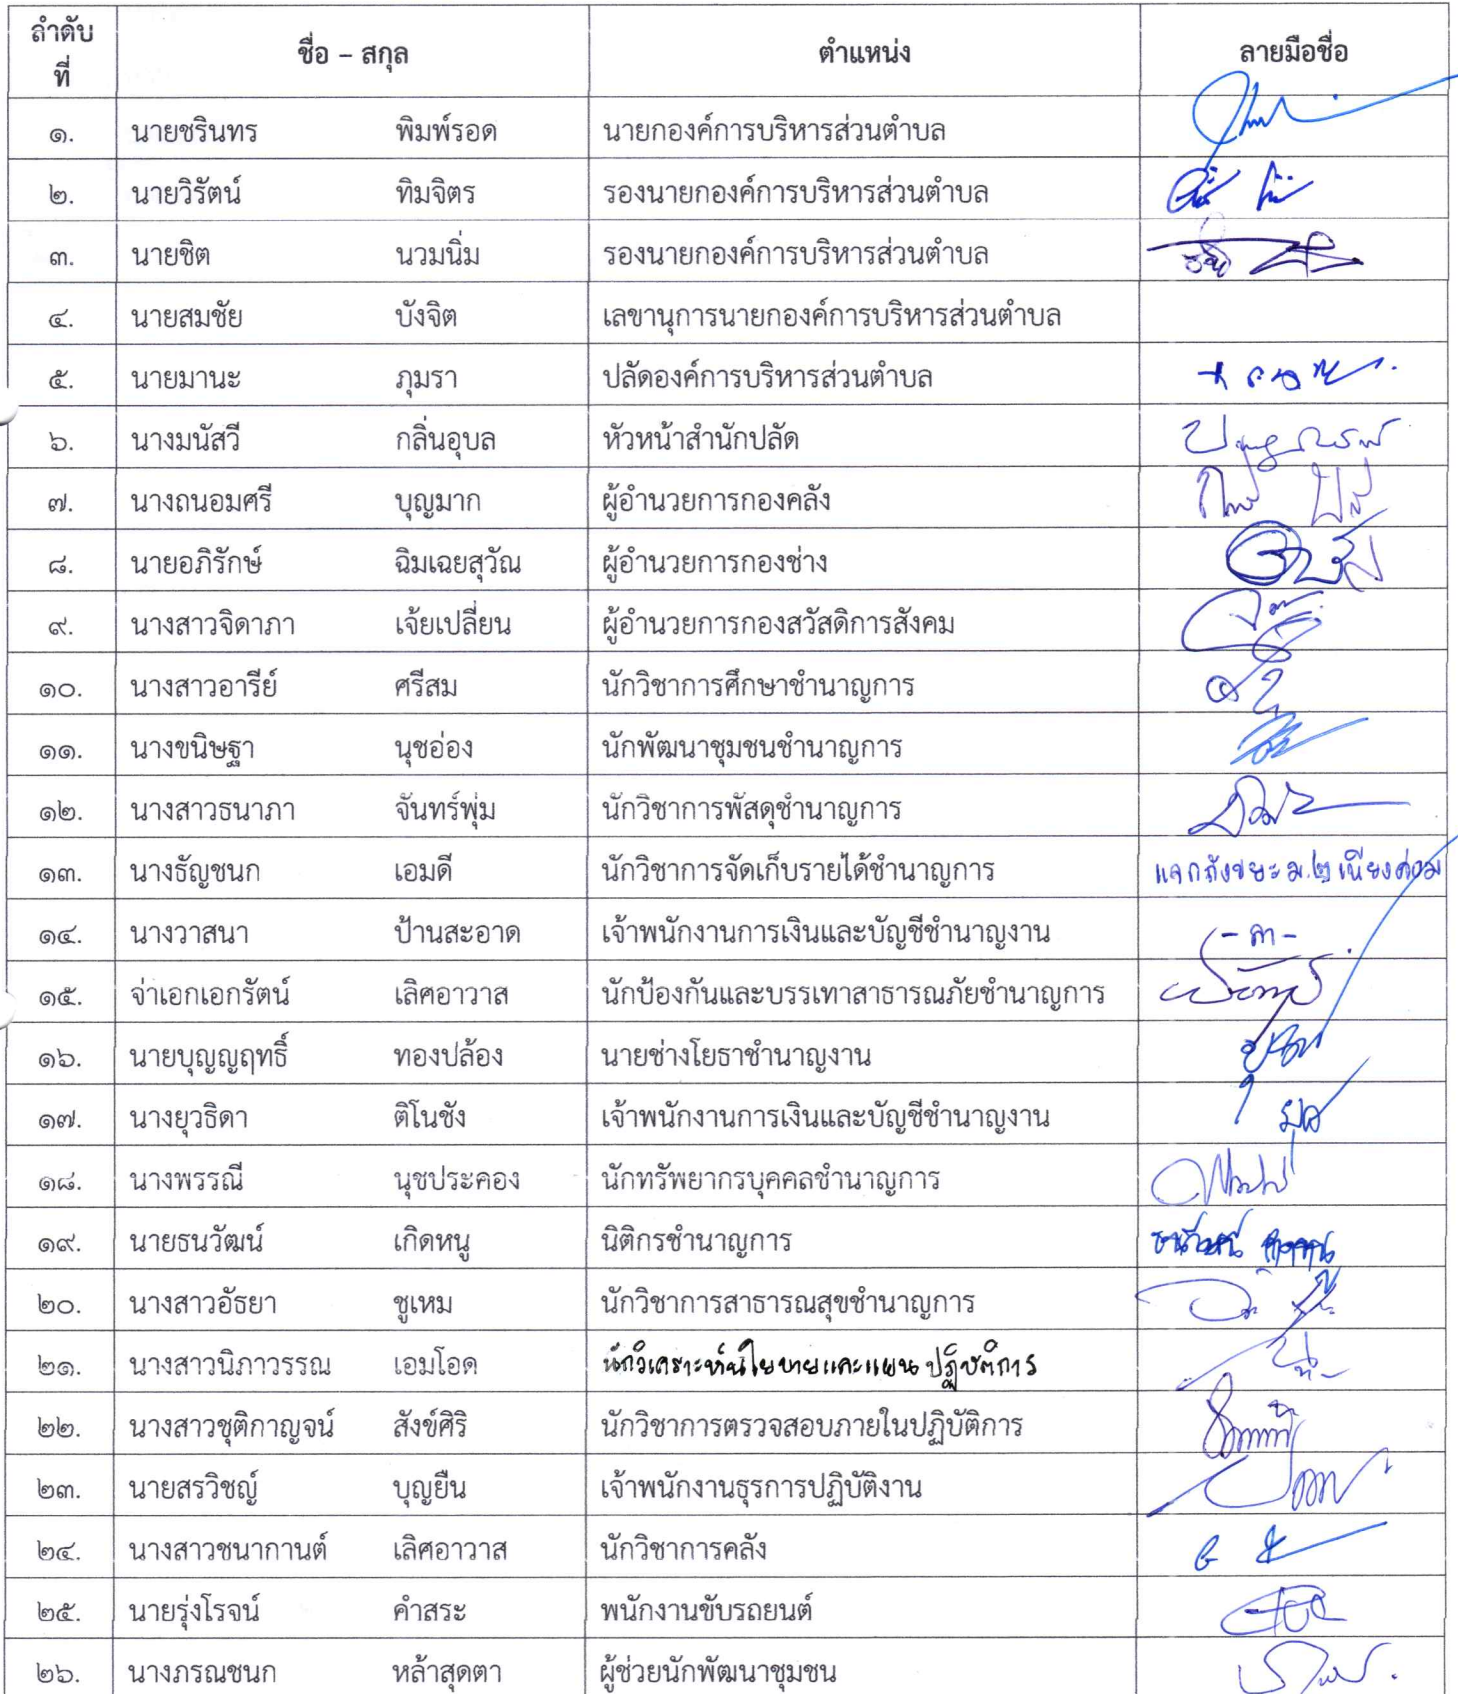 ลำดับที่ ชื่อ – สกุล ตำแหน่ง ลายมือชื่อ
๑. นายชรินทร พิมพ์รอด นายกองค์การบริหารส่วนตำบล
๒. นายวิรัตน์ ทิมจิตร รองนายกองค์การบริหารส่วนตำบล
๓. นายชิต นวมนิ่ม รองนายกองค์การบริหารส่วนตำบล
๔. นายสมชัย บังจิต เลขานุการนายกองค์การบริหารส่วนตำบล
๕. นายมานะ ภุมรา ปลัดองค์การบริหารส่วนตำบล
๖. นางมนัสวี กลิ่นอุบล หัวหน้าสำนักปลัด
๗. นางถนอมศรี บุญมาก ผู้อำนวยการกองคลัง
๘. นายอภิรักษ์ ฉิมเฉยสุวัณ ผู้อำนวยการกองช่าง
๙. นางสาวจิดาภา เจ้ยเปลี่ยน ผู้อำนวยการกองสวัสดิการสังคม
๑๐. นางสาวอารีย์ ศรีสม นักวิชาการศึกษาชำนาญการ
๑๑. นางขนิษฐา นุชอ่อง นักพัฒนาชุมชนชำนาญการ
๑๒. นางสาวธนาภา จันทร์พุ่ม นักวิชาการพัสดุชำนาญการ
๑๓. นางธัญชนก เอมดี นักวิชาการจัดเก็บรายได้ชำนาญการ แจกถังขยะ ม.๒
๑๔. นางวาสนา ป้านสะอาด เจ้าพนักงานการเงินและบัญชีชำนาญงาน - ลา -
๑๕. จ่าเอกเอกรัตน์ เลิศอาวาส นักป้องกันและบรรเทาสาธารณภัยชำนาญการ
๑๖. นายบุญญฤทธิ์ ทองปล้อง นายช่างโยธาชำนาญงาน
๑๗. นางยุวธิดา ติโนชัง เจ้าพนักงานการเงินและบัญชีชำนาญงาน
๑๘. นางพรรณี นุชประคอง นักทรัพยากรบุคคลชำนาญการ
๑๙. นายธนวัฒน์ เกิดหนู นิติกรชำนาญการ
๒๐. นางสาวอัธยา ชูเหม นักวิชาการสาธารณสุขชำนาญการ
๒๑. นางสาวนิภาวรรณ เอมโอด นักวิเคราะห์นโยบายและแผนปฏิบัติการ
๒๒. นางสาวชุติกาญจน์ สังข์ศิริ นักวิชาการตรวจสอบภายในปฏิบัติการ
๒๓. นายสรวิชญ์ บุญยืน เจ้าพนักงานธุรการปฏิบัติงาน
๒๔. นางสาวชนากานต์ เลิศอาวาส นักวิชาการคลัง
๒๕. นายรุ่งโรจน์ คำสระ พนักงานขับรถยนต์
๒๖. นางภรณชนก หล้าสุดตา ผู้ช่วยนักพัฒนาชุมชน